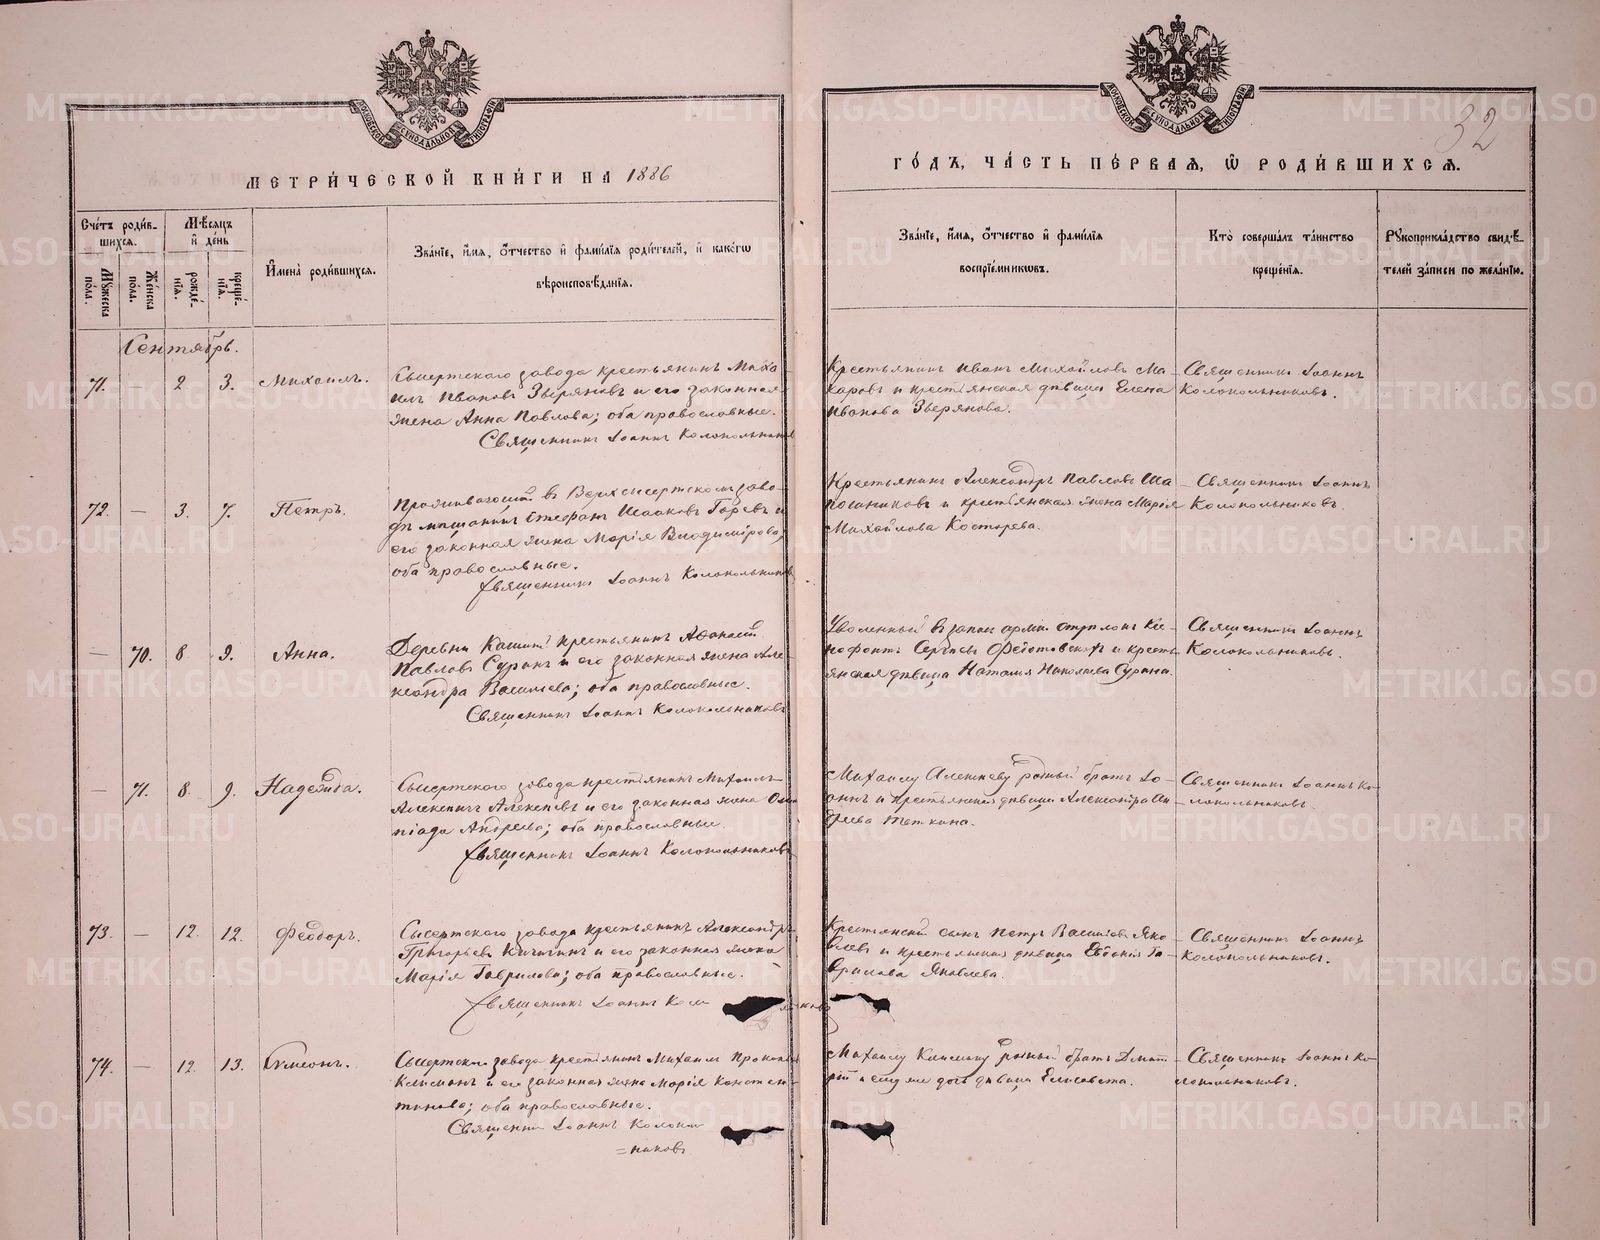 МЕТРИ́ЧЕСКОЙ КНИ́ГИ НА 1886
ГО́ДЪ, ЧА́СТЬ ПЕ́РВАЯ, Ѿ РОДИ́ВШИХСЯ.
32
МОСКОВСКОЙ СѴНОДАЛЬНОЙ ТИПОГРАФІИ
МОСКОВСКОЙ СѴНОДАЛЬНОЙ ТИПОГРАФІИ
Сче́тъ роди́в-
шихся.
Мѣ́сяцъ
и҆ де́нь
Мꙋжеска по́ла.
Же́нска по́ла.
рожде́-нїя.
креще́-нїя.
И҆мена̀ роди́вшихся.
Зва́нїе, и҆́мя, ѻ҆́тчество и҆ фами́лїя роди́телей, и҆ како́гѡ
вѣроисповѣ́данїя.
Зва́нїе, и҆́мя, ѻ҆́тчество и҆ фами́лїя
воспрїе́мникѡвъ.
Кто̀ соверша́лъ та́инство
креще́нїя.
Рꙋкоприкла́дство свидѣ́-
телей за́писи по жела́нїю.
Сентябрь.
71. — 2 3. Михаилъ.
Сысертскаго завода крестьянинъ Миха
илъ Ивановъ Зыряновъ и его законная
жена Анна Павлова; оба православные.
Священникъ Іоаннъ Колокольников
Крестьянинъ Иванъ Михайловъ Ма-
каровъ и крестьянская дѣвица Елена
Иванова Зырянова.
Священникъ Іоаннъ
Колокольниковъ.
72. — 3. 7. Петръ.
Проживающій въ Верхсысертскомъ заво-
дѣ мѣщанинъ Стефанъ Исааковъ Горевъ и
его законная жена Марія Владимірова,
оба православные.
Священникъ Іоаннъ Колокольников
Крестьянинъ Александръ Павловъ Ша-
пошниковъ и крестьянская жена Марія
Михайлова Костарева.
Священникъ Іоаннъ
Колокольниковъ.
— 70. 8 9. Анна.
Деревни Кашиной крестьянинъ Аѳанасій
Павловъ Суринъ и его законная жена Але
ксандра Васильева; оба православные.
Священникъ Іоаннъ Колокольниковъ
Уволенный въ запасъ арміи стрѣлокъ Ксе-
нофонтъ Сергѣевъ и кресть-
янская дѣвица Наталія Николаева Сурина.
Священникъ Іоаннъ
Колокольниковъ.
— 71. 8. 9. Надежда.
Сысертскаго завода крестьянинъ Михаилъ
и его законная жена Олим
піада Андреева; оба православные.
Священникъ Іоаннъ Колокольниковъ
Михаилу родный братъ Іо-
аннъ и крестьянская дѣвица Александра Ан-
дреева Теткина.
Священникъ Іоаннъ Ко-
локольниковъ.
73. — 12. 12. Ѳеодоръ.
Сысертскаго завода крестьянинъ Александръ
Григорьевъ и его законная жена
Марія Гаврилова; оба православные.
Священникъ Іоаннъ Коло
Крестьянскій сынъ Петръ Васильевъ Яко-
влевъ и крестьянская дѣвица Евгенія Га-
врилова Яковлева.
Священникъ Іоаннъ
Колокольниковъ.
74. — 12. 13. Симеонъ.
Сысертскаго завода крестьянинъ Михаилъ Прокопьев
и его законная жена Марія Констан-
тинова; оба православные.
Священникъ Іоаннъ Колоколь
=никовъ
Михаилу родный братъ Дмит
рій и ему же дочь дѣвица Елисавета.
Священникъ Іоаннъ Ко-
локольниковъ.
METRIKI.GASO-URAL.RU